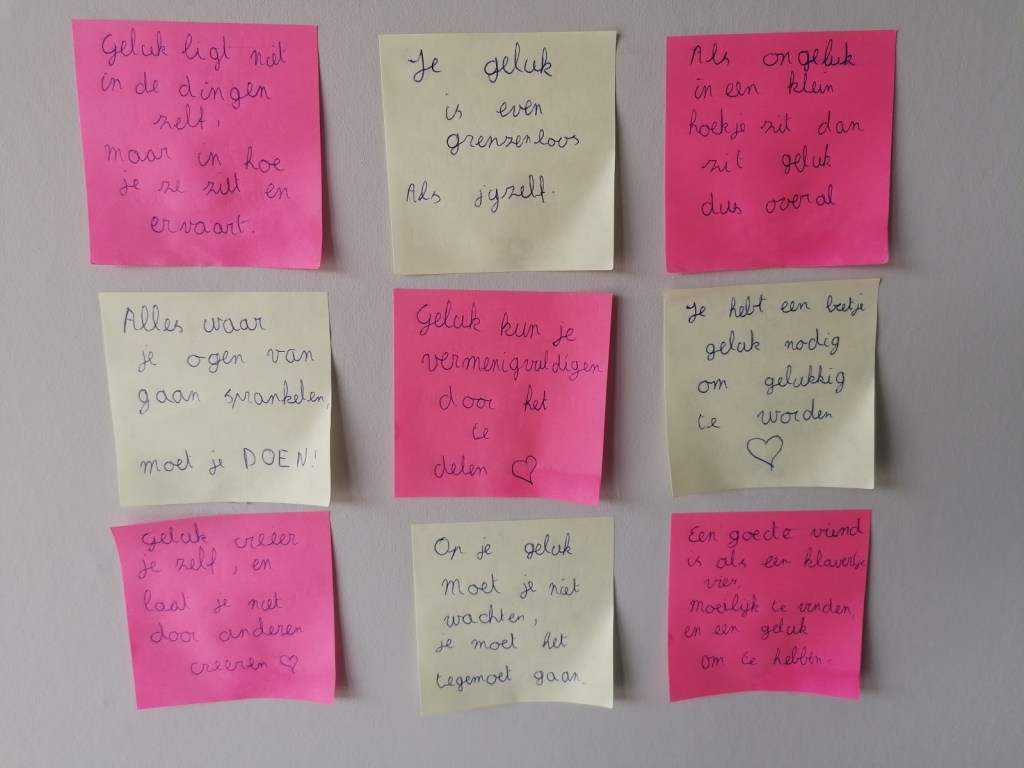 Geluk ligt niet
in de dingen
zelf,
maar in hoe
je ze ziet en
ervaart.
Je geluk
is even
grenzenloos
Als jyzelf.
Als ongeluk
in een klein
hoekje zit dan
zit geluk
dus overal
Alles waar
je ogen van
gaan sprankelen,
moet je DOEN!
Geluk kun je
vermenigvuldigen
door het
te
delen ♡
Je hebt een beetje
geluk nodig
om gelukkig
te worden
♡
Geluk creëer
je zelf, en
laat je niet
door anderen
creëren ♡
Op je geluk
moet je niet
wachten,
je moet het
tegemoet gaan.
Een goede vriend
is als een klavertje
vier.
moeilijk te vinden,
en een geluk
om te hebben.